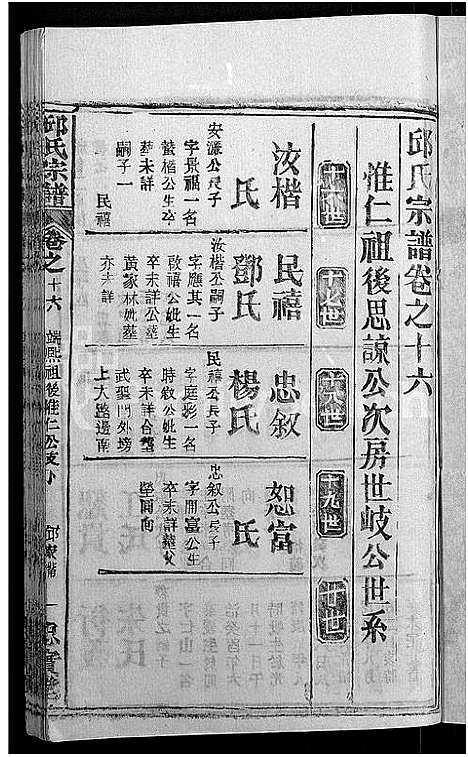 邱氏宗譜卷之十六
惟仁祖後思諒公次房世岐公世系
十六世
十七世
十八世
十九世
廿世
汝楷
氏
安濂公長子
字景福一名
螢楷公生卒
葬未詳
嗣子一
民禧
民禧
鄧氏
汝楷公嗣子
字應其一名
啟禧公妣生
卒未詳公葬
黃家林妣葬
亦未詳
忠叙
楊氏
民禧公長子
字庭影一名
時叙公妣生
卒未詳合塋
武聖門外塝
上大路邊南
恕富
氏
忠叙公長子
字開富公生
卒未詳葬父
塋同向
邱氏宗譜
卷之十六
端熙祖後惟仁公支下